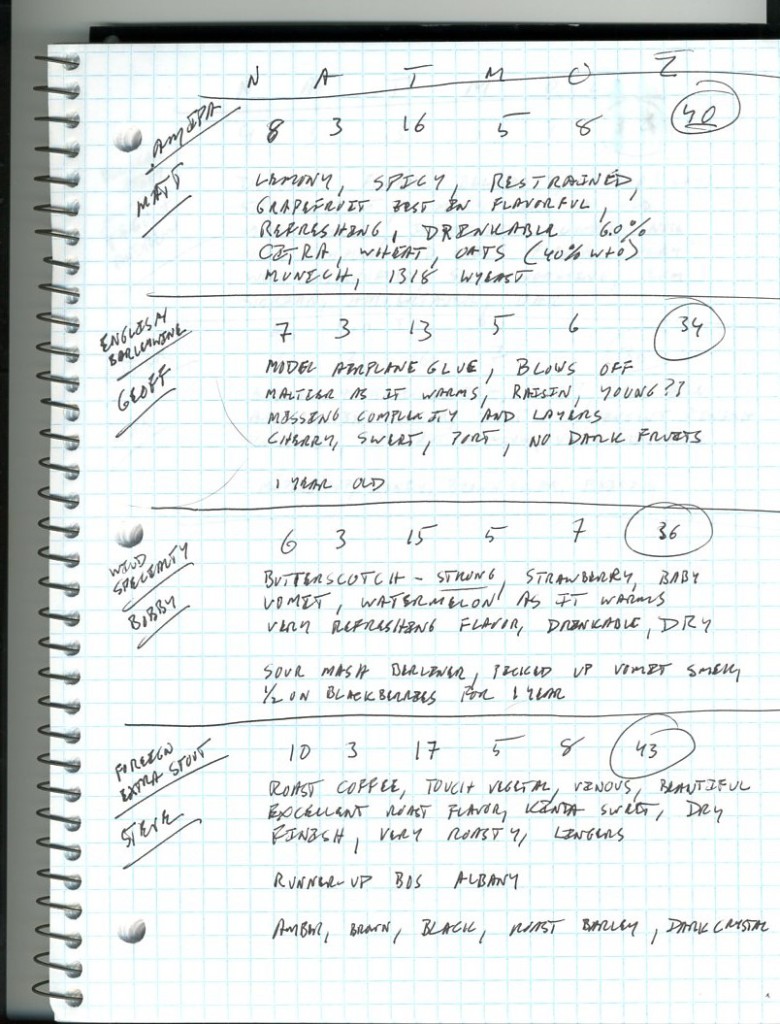 N A T M O Σ
AM IPA 8 3 16 5 8 40
MATT
LEMONY, SPICY, RESTRAINED,
GRAPEFRUIT ZEST IN FLAVORFUL,
REFRESHING, DRINKABLE 6.0%
CITRA, WHEAT, OATS (40% W+O)
MUNICH, 1318 WYEAST
ENGLISH
BARLEYWINE 7 3 13 5 6 34
GEOFF
MODEL AIRPLANE GLUE, BLOWS OFF
MALTIER AS IT WARMS, RAISIN, YOUNG??
MISSING COMPLEXITY AND LAYERS
CHERRY, SWEET, PORT, NO DARK FRUITS
1 YEAR OLD
WILD
SPECIALTY 6 3 15 5 7 36
BOBBY
BUTTERSCOTCH - STRONG, STRAWBERRY, BABY
VOMIT, WATERMELON AS IT WARMS
VERY REFRESHING FLAVOR, DRINKABLE, DRY
SOUR MASH BERLINER, PICKED UP VOMIT SMELL
1/2 ON BLACKBERRIES FOR 1 YEAR
FOREIGN
EXTRA STOUT 10 3 17 5 8 43
STEVE
ROAST COFFEE, TOUCH VEGETAL, VINOUS, BEAUTIFUL
EXCELLENT ROAST FLAVOR, KINDA SWEET, DRY
FINISH, VERY ROASTY, LINGERS
RUNNER-UP BOS ALBANY
AMBER, BROWN, BLACK, ROAST BARLEY, DARK CRYSTAL